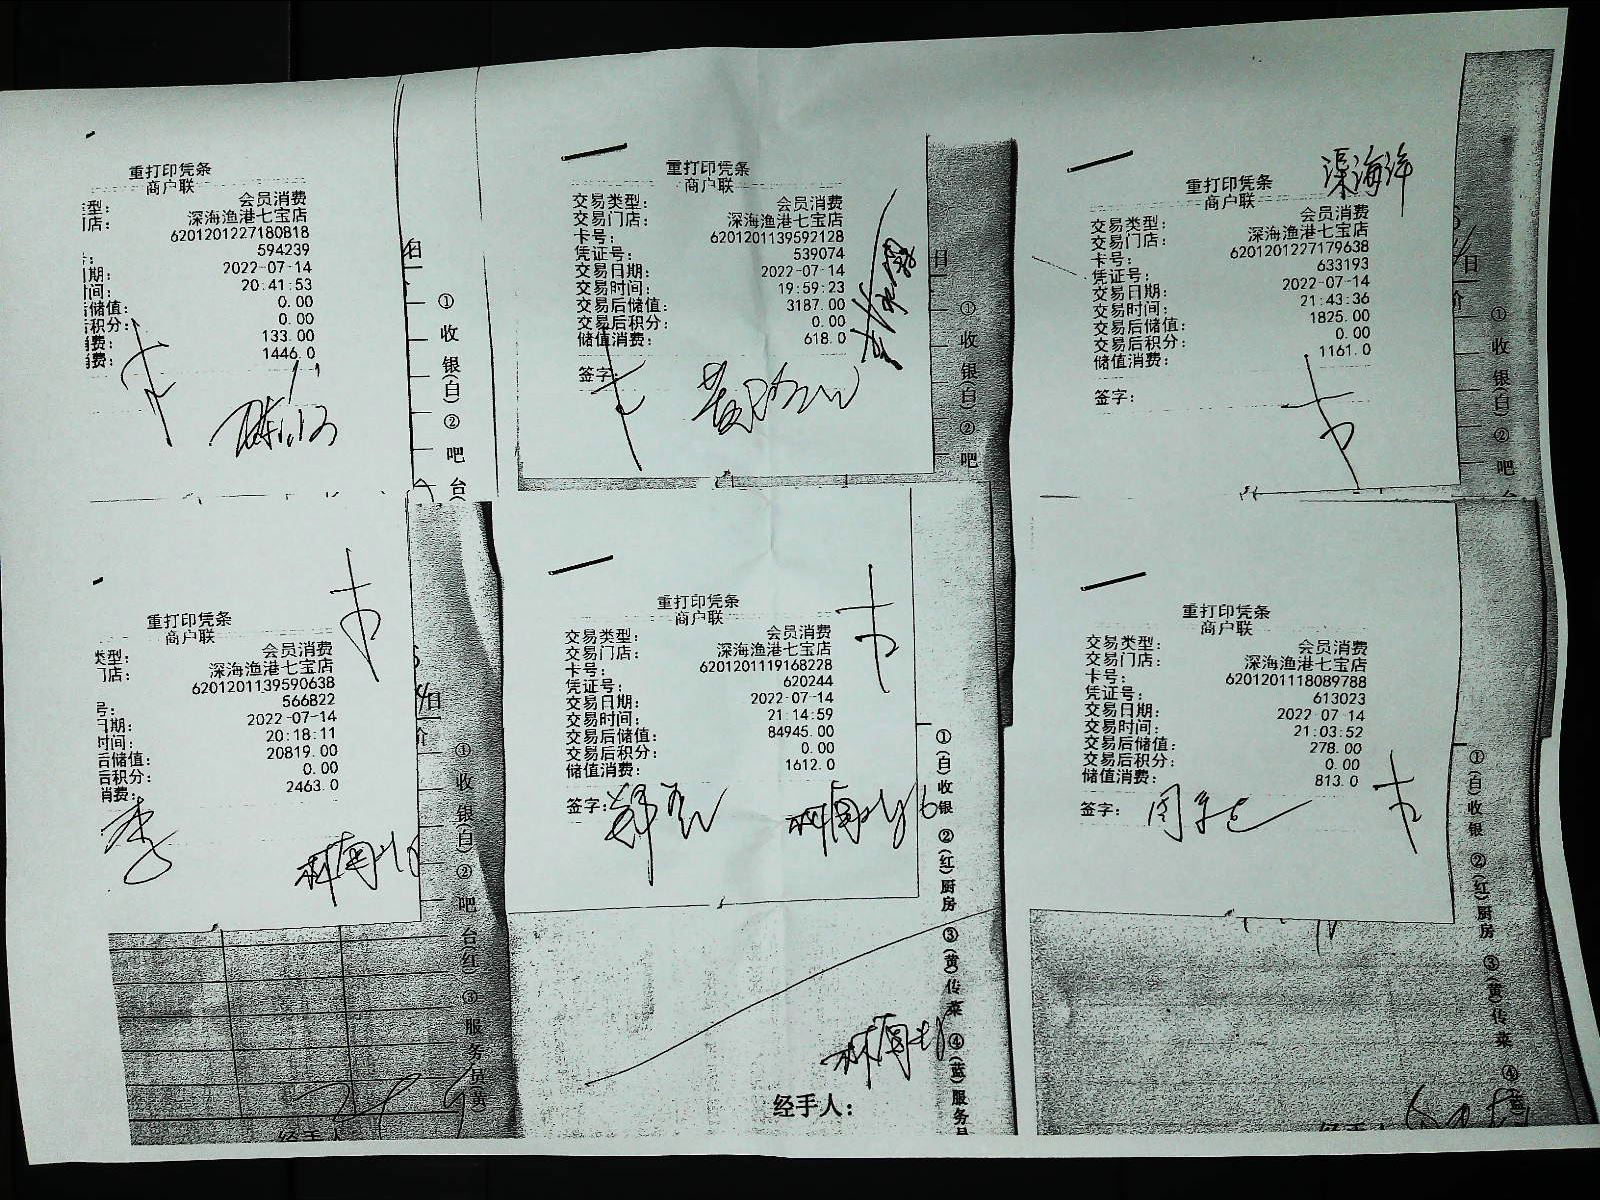 重打印凭条
商户联
类型： 会员消费
门店： 深海渔港七宝店
6201201227180818
号： 594239
期： 2022-07-14
间： 20:41:53
储值： 0.00
积分： 0.00
消费： 133.00
消费： 1446.0
重打印凭条
商户联
交易类型： 会员消费
交易门店： 深海渔港七宝店
卡号： 6201201139592128
凭证号： 539074
交易日期： 2022-07-14
交易时间： 19:59:23
交易后储值： 3187.00
交易后积分： 0.00
储值消费： 618.0
签字：
重打印凭条
商户联
交易类型： 会员消费
交易门店： 深海渔港七宝店
卡号： 6201201227179638
凭证号： 633193
交易日期： 2022-07-14
交易时间： 21:43:36
交易后储值： 1825.00
交易后积分： 0.00
储值消费： 1161.0
签字：
①收银(白)②吧台(
日
①收银(白)②吧
日
价
①收银(白)②吧台
重打印凭条
商户联
类型： 会员消费
门店： 深海渔港七宝店
6201201139590638
号： 566822
日期： 2022-07-14
时间： 20:18:11
后储值： 20819.00
后积分： 0.00
消费： 2463.0
李
重打印凭条
商户联
交易类型： 会员消费
交易门店： 深海渔港七宝店
卡号： 6201201119168228
凭证号： 620244
交易日期： 2022-07-14
交易时间： 21:14:59
交易后储值： 84945.00
交易后积分： 0.00
储值消费： 1612.0
签字：
重打印凭条
商户联
交易类型： 会员消费
交易门店： 深海渔港七宝店
卡号： 6201201118089788
凭证号： 613023
交易日期： 2022-07-14
交易时间： 21:03:52
交易后储值： 278.00
交易后积分： 0.00
储值消费： 813.0
签字：
日
价
①收银(白)②吧台(红)③服务员(黄)
①(白)收银②(红)厨房③(黄)传菜④(蓝)服务员
①(白)收银②(红)厨房③(黄)传菜④(蓝)
经手人
经手人：
经手人